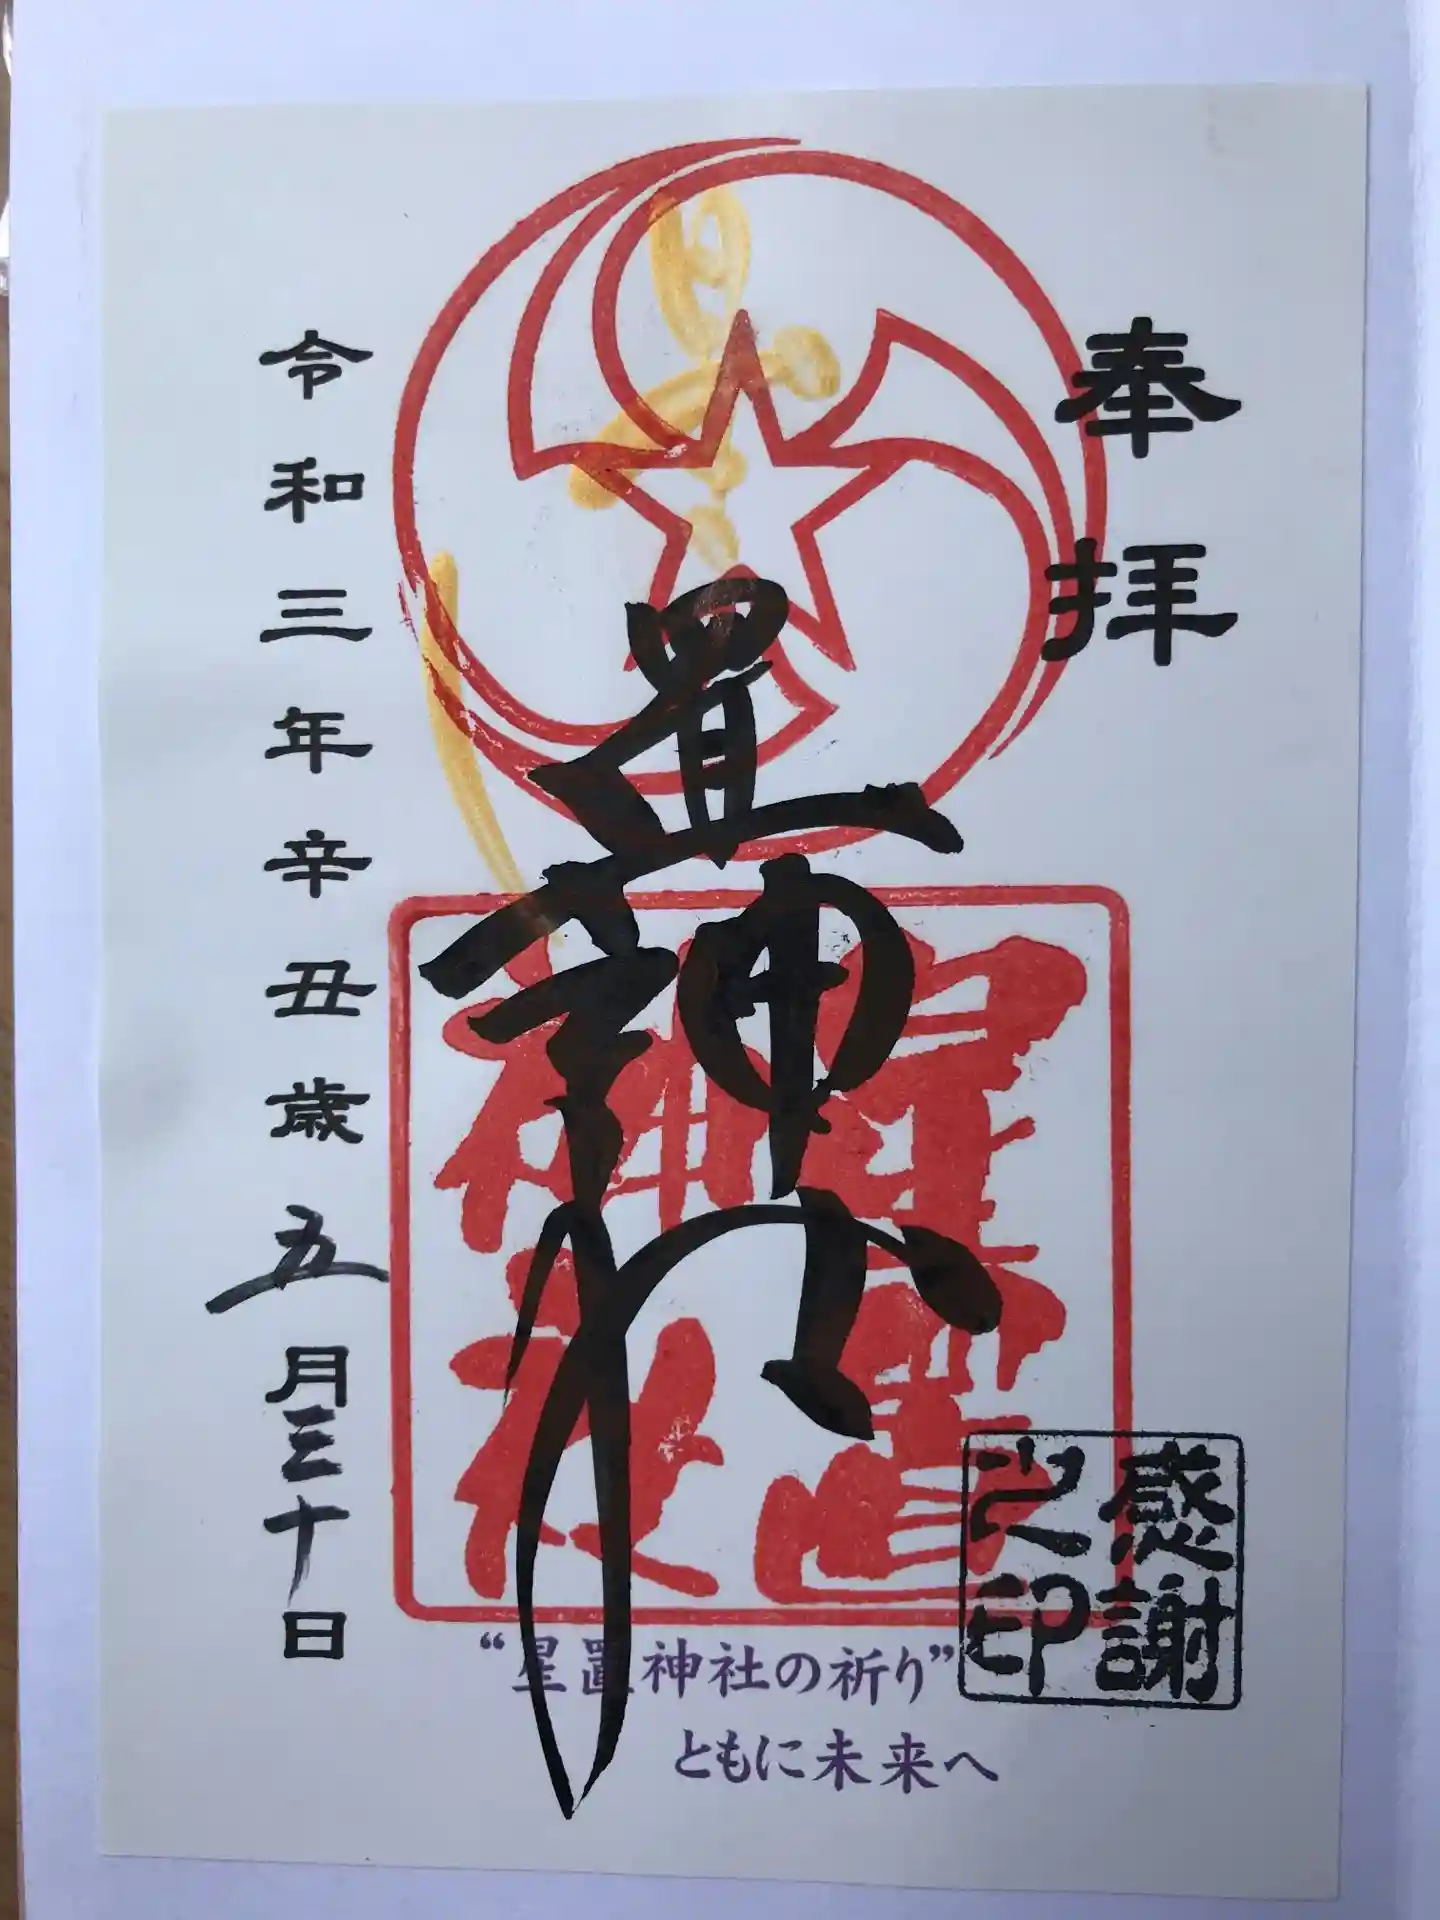 奉拝
星置神社
星置神社
令和三年辛丑歳五月三十日
感謝
之印
“星置神社の祈り”
ともに未来へ